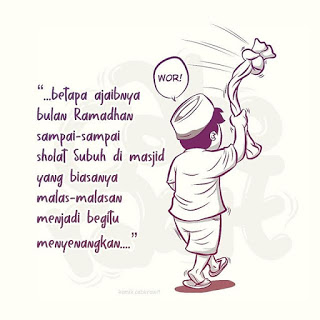 WOR!
"...betapa ajaibnya
bulan Ramadhan
sampai-sampai
sholat Subuh di masjid
yang biasanya
malas-malasan
menjadi begitu
menyenangkan...."